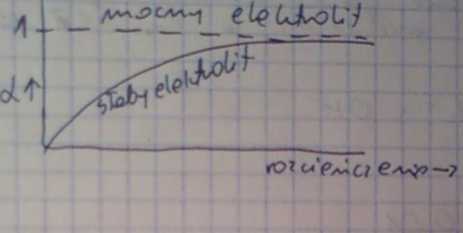 1 mocny elektrolit
α↑
słaby elektrolit
rozcieńczenie→